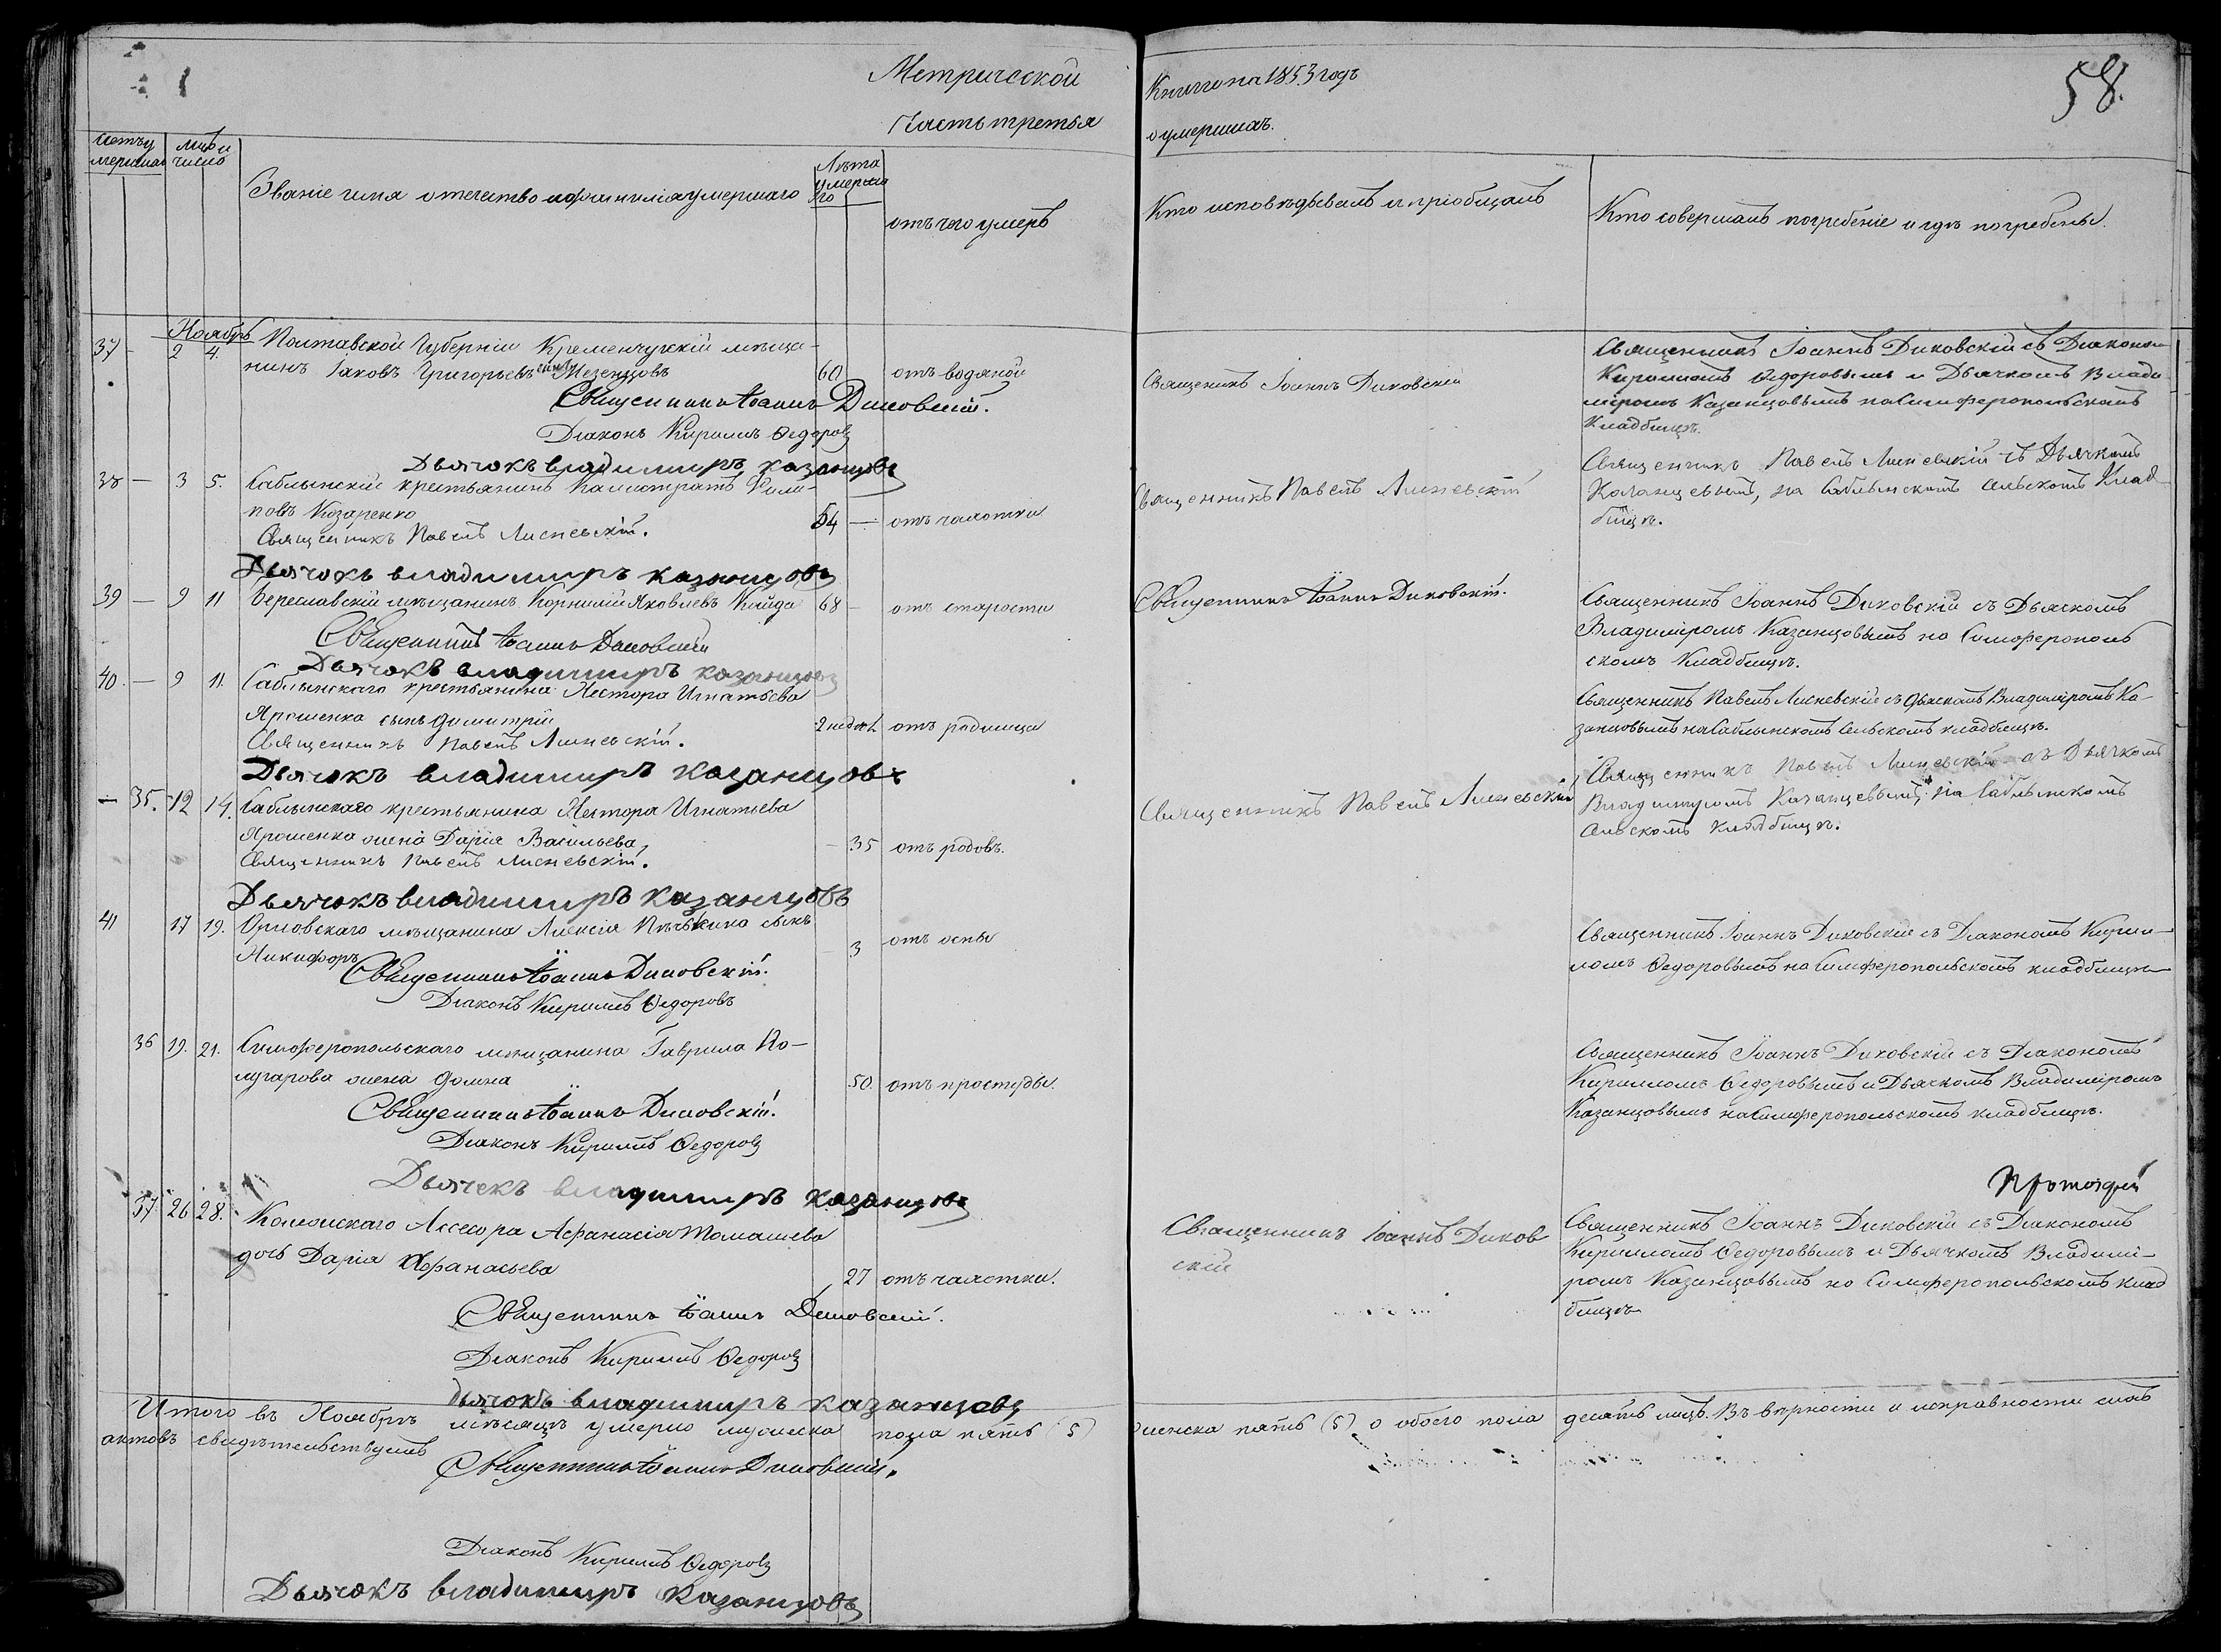 Метрической Книги на 1853 годъ
58.
Часть третья о умершихъ.
Счетъ умершихъ
Мѣс. и число
Званіе имя отечество и фамилія умершаго
Лѣта умершаго
отъ чего умеръ
Кто исповѣдывалъ и пріобщалъ
Кто совершалъ погребеніе и гдѣ погребены.
Ноябрь
37 – 2 4. Полтавской Губерніи Кременчугскій мѣща-
нинъ Іаковъ Григорьевъ сынъ Мезенцовъ 60 отъ водяной
Священникъ Іоаннъ Диковскій.
Діаконъ Кириллъ Ѳедоровъ
Дьячокъ владимиръ казанцовъ
Священникъ Іоаннъ Диковскій
Священникъ Іоаннъ Диковскій съ Діакономъ
Кирилломъ Ѳедоровымъ и Дьячкомъ Влади
міромъ Казанцовымъ на Симферопольскомъ
Кладбищѣ.
38 – 3 5. Саблынскій крестьянинъ Калистратъ Фили-
повъ Козаренко 54 – отъ чахотки
Священникъ Павелъ Лисневскій.
Дьячокъ владимиръ казанцовъ
Священникъ Павелъ Лисневскій
Священникъ Павелъ Лисневскій съ Дьячкомъ
Казанцевымъ, на Саблынскомъ сельскомъ Клад-
бищѣ.
39 – 9 11 Береславскій мѣщанинъ Корнилій Яковлевъ Кайда 68 – отъ старости
Священникъ Іоаннъ Диковскій
Дьячокъ владимиръ казанцовъ
Священникъ Іоаннъ Диковскій.
Священникъ Іоаннъ Диковскій съ Дьячкомъ
Владиміромъ Казанцовымъ на Симферополь
скомъ Кладбищѣ.
40. – 9 11. Саблынскаго крестьянина Нестора Игнатьева
Ярошенка сынъ Димитрій 2 недѣл. отъ родимца
Священникъ Павелъ Лисневскій.
Дьячокъ владимиръ казанцовъ
Священникъ Павелъ Лисневскій съ Дьячкомъ Владиміромъ Ка-
занцовымъ на Саблынскомъ сельскомъ кладбищѣ.
– 35. 12 14. Саблынскаго крестьянина Нестора Игнатьева
Ярошенка жена Дарія Васильева, – 35 отъ родовъ.
Священникъ Павелъ Лисневскій.
Дьячокъ владимиръ казанцовъ
Священникъ Павелъ Лисневскій
Священникъ Павелъ Лисневскій съ Дьячкомъ
Владимиромъ Казанцевымъ, на Саблынскомъ
сельскомъ кладбищѣ.
41 17 19. Орловскаго мѣщанина Алексія сынъ
Никифоръ 3 отъ оспы
Священникъ Іоаннъ Диковскій.
Діаконъ Кириллъ Ѳедоровъ
Священникъ Іоаннъ Диковскій съ Діакономъ Кирил-
ломъ Ѳедоровымъ на Симферопольскомъ кладбищѣ
36 19. 21. Симферопольскаго мѣщанина Гаврила По-
жена Домна 50. отъ простуды.
Священникъ Іоаннъ Диковскій.
Діаконъ Кириллъ Ѳедоровъ
Дьячекъ владимиръ казанцовъ
Священникъ Іоаннъ Диковскій съ Діакономъ
Кирилломъ Ѳедоровымъ и Дьячкомъ Владиміромъ
Казанцовымъ на Симферопольскомъ кладбищѣ.
37. 26 28. Ассесора Аѳанасія Томашева
дочь Дарія Аѳанасьева 27 отъ чахотки.
Священникъ Іоаннъ Диковскій.
Діаконъ Кириллъ Ѳедоровъ
Дьячокъ владимиръ казанцовъ
Священникъ Іоаннъ Диков
скій
Священникъ Іоаннъ Диковскій съ Діакономъ
Кирилломъ Ѳедоровымъ и Дьячкомъ Владимі-
ромъ Казанцовымъ на Симферопольскомъ клад
бищѣ
Итого въ Ноябрѣ мѣсяцѣ умерло мужеска пола пять (5) женска пять (5) а обоего пола десять лицъ. Въ вѣрности и исправности сихъ
актовъ свидѣтельствуемъ
Священникъ Іоаннъ Диковскій.
Діаконъ Кириллъ Ѳедоровъ
Дьячокъ владимиръ казанцовъ